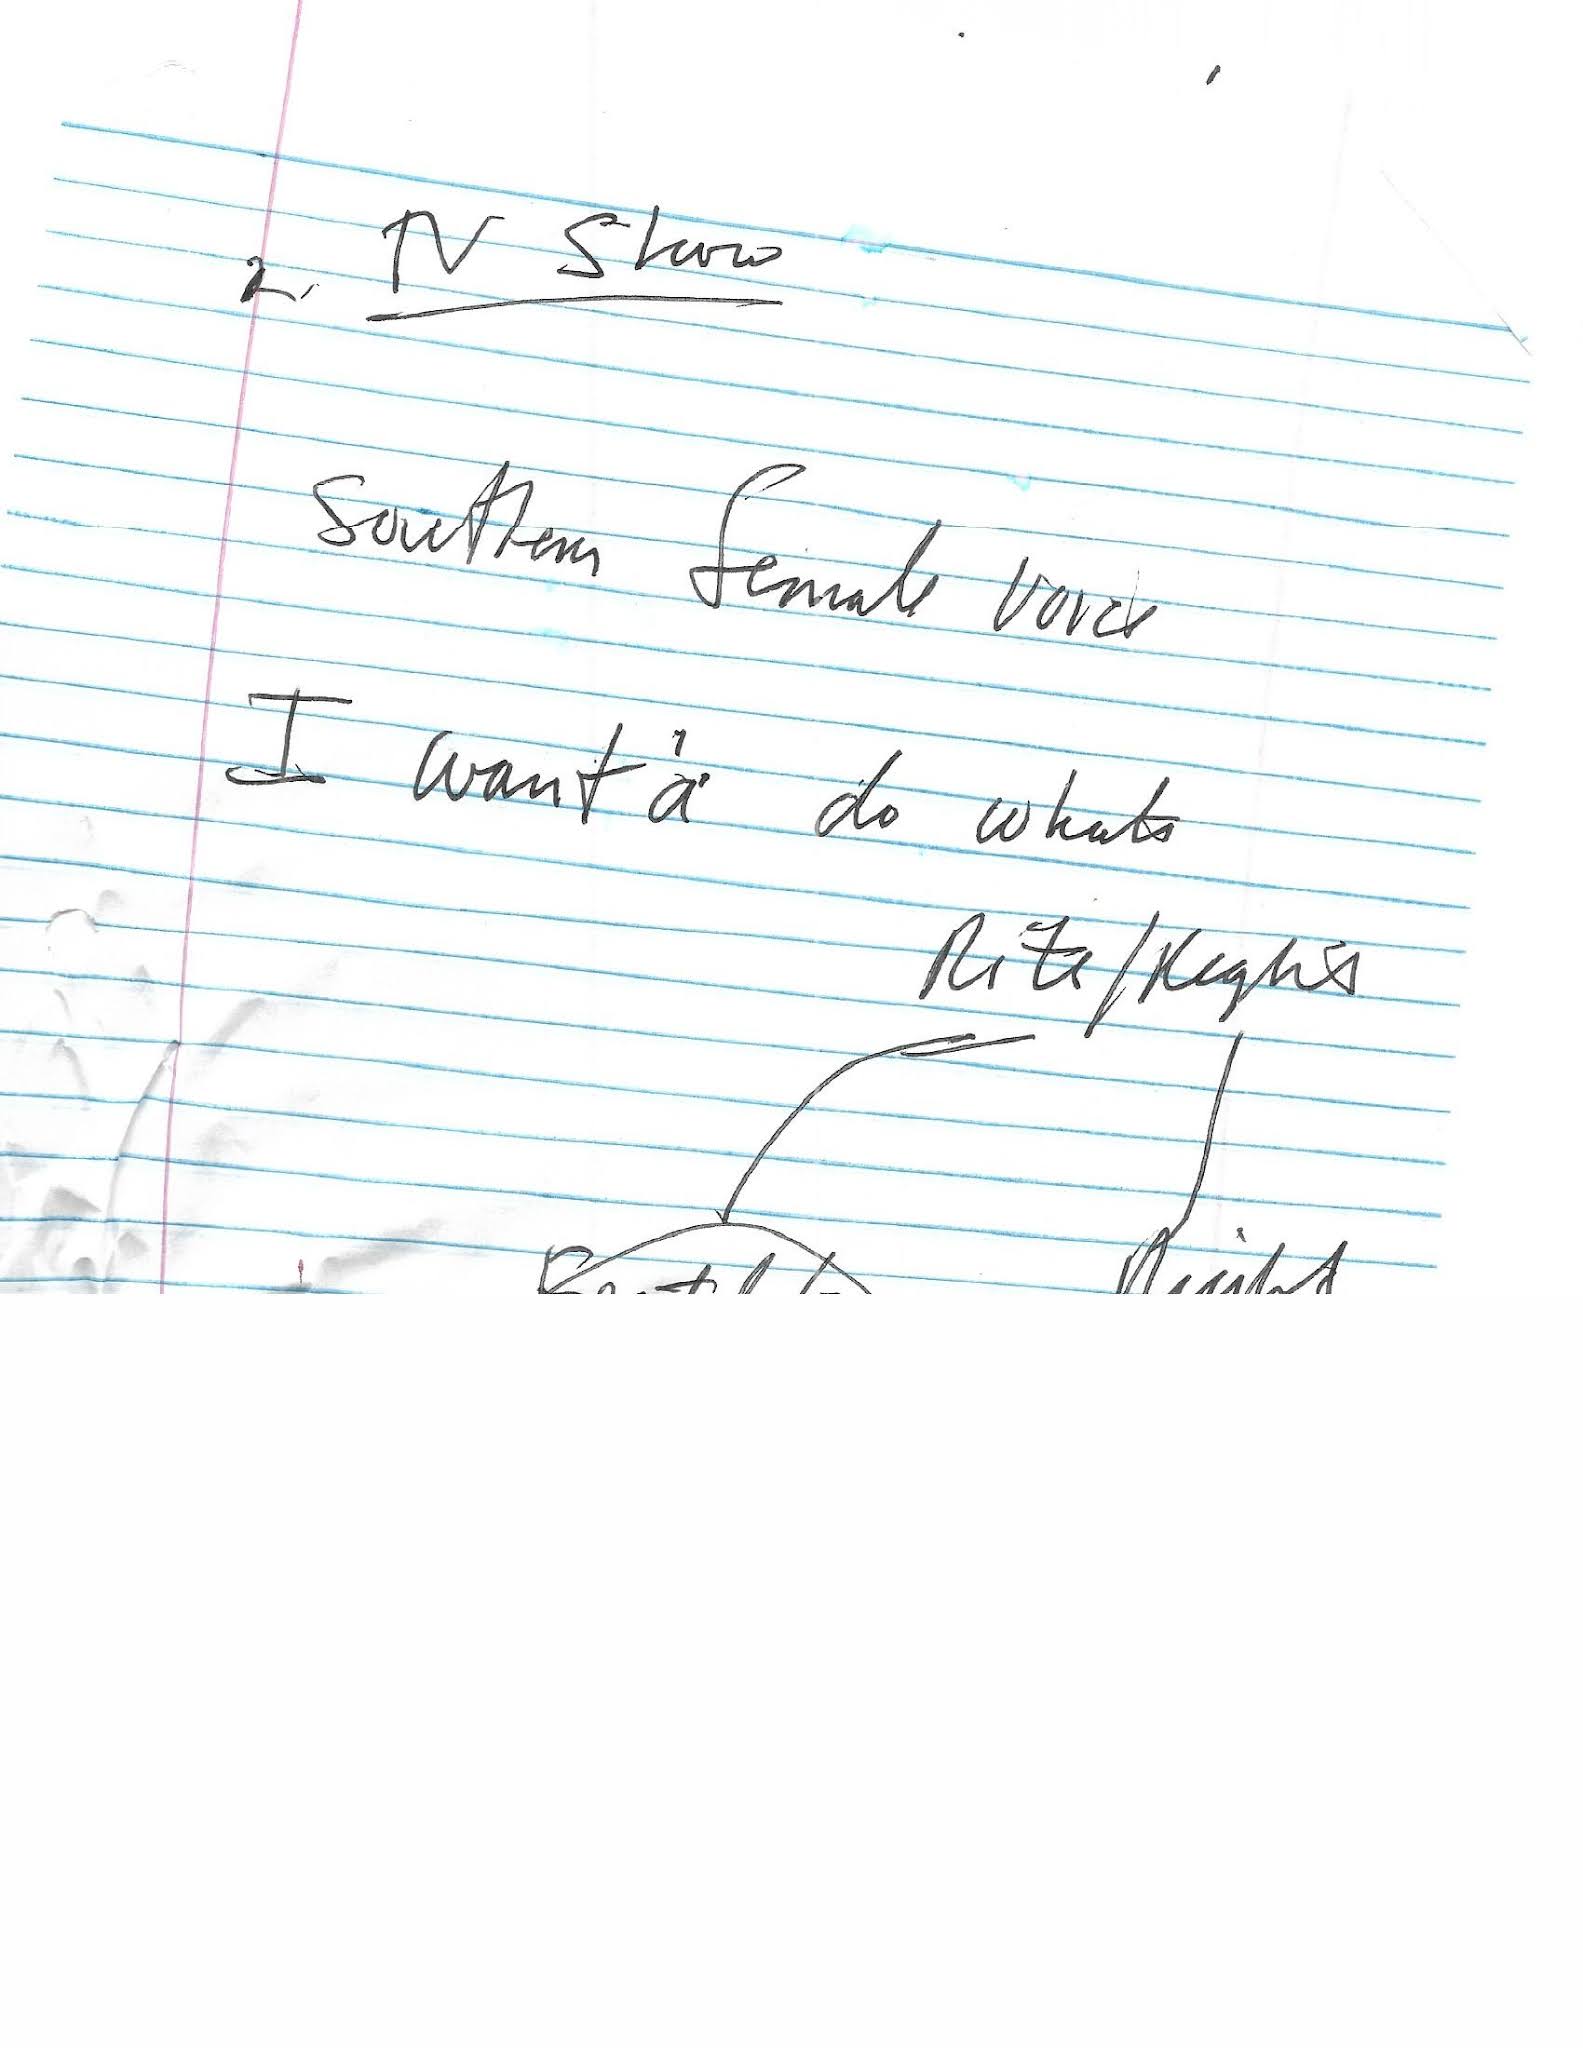 2. TV Show
Southern female voice
I want'a do whats
Rite/Right